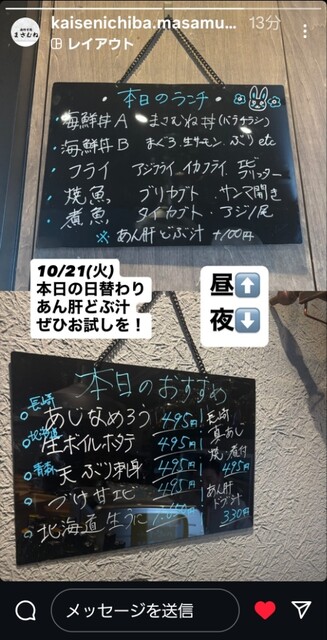 kaisenichiba.masamu... 13分
レイアウト
まさむね
・本日のランチ・
・海鮮丼A まさむね丼(バラチラシ)
・海鮮丼B まぐろ.生サーモン.ぶりetc
・フライ アジフライ.イカフライ.エビフリッター
・焼魚 ブリカブト.サンマ開き
・煮魚 タイカブト.アジ1尾
※あん肝どぶ汁 +100円
10/21(火)
本日の日替わり
あん肝どぶ汁
ぜひお試しを！
昼⬆️
夜⬇️
本日のおすすめ
長崎
あじなめろう 495円
北海道
生ボイルホタテ 495円
青森
天ぶり刺身 495円
づけ甘エビ 495円
北海道生うに
長崎
真あじ
焼/煮付
495円
あん肝
ドブ汁
330円
メッセージを送信